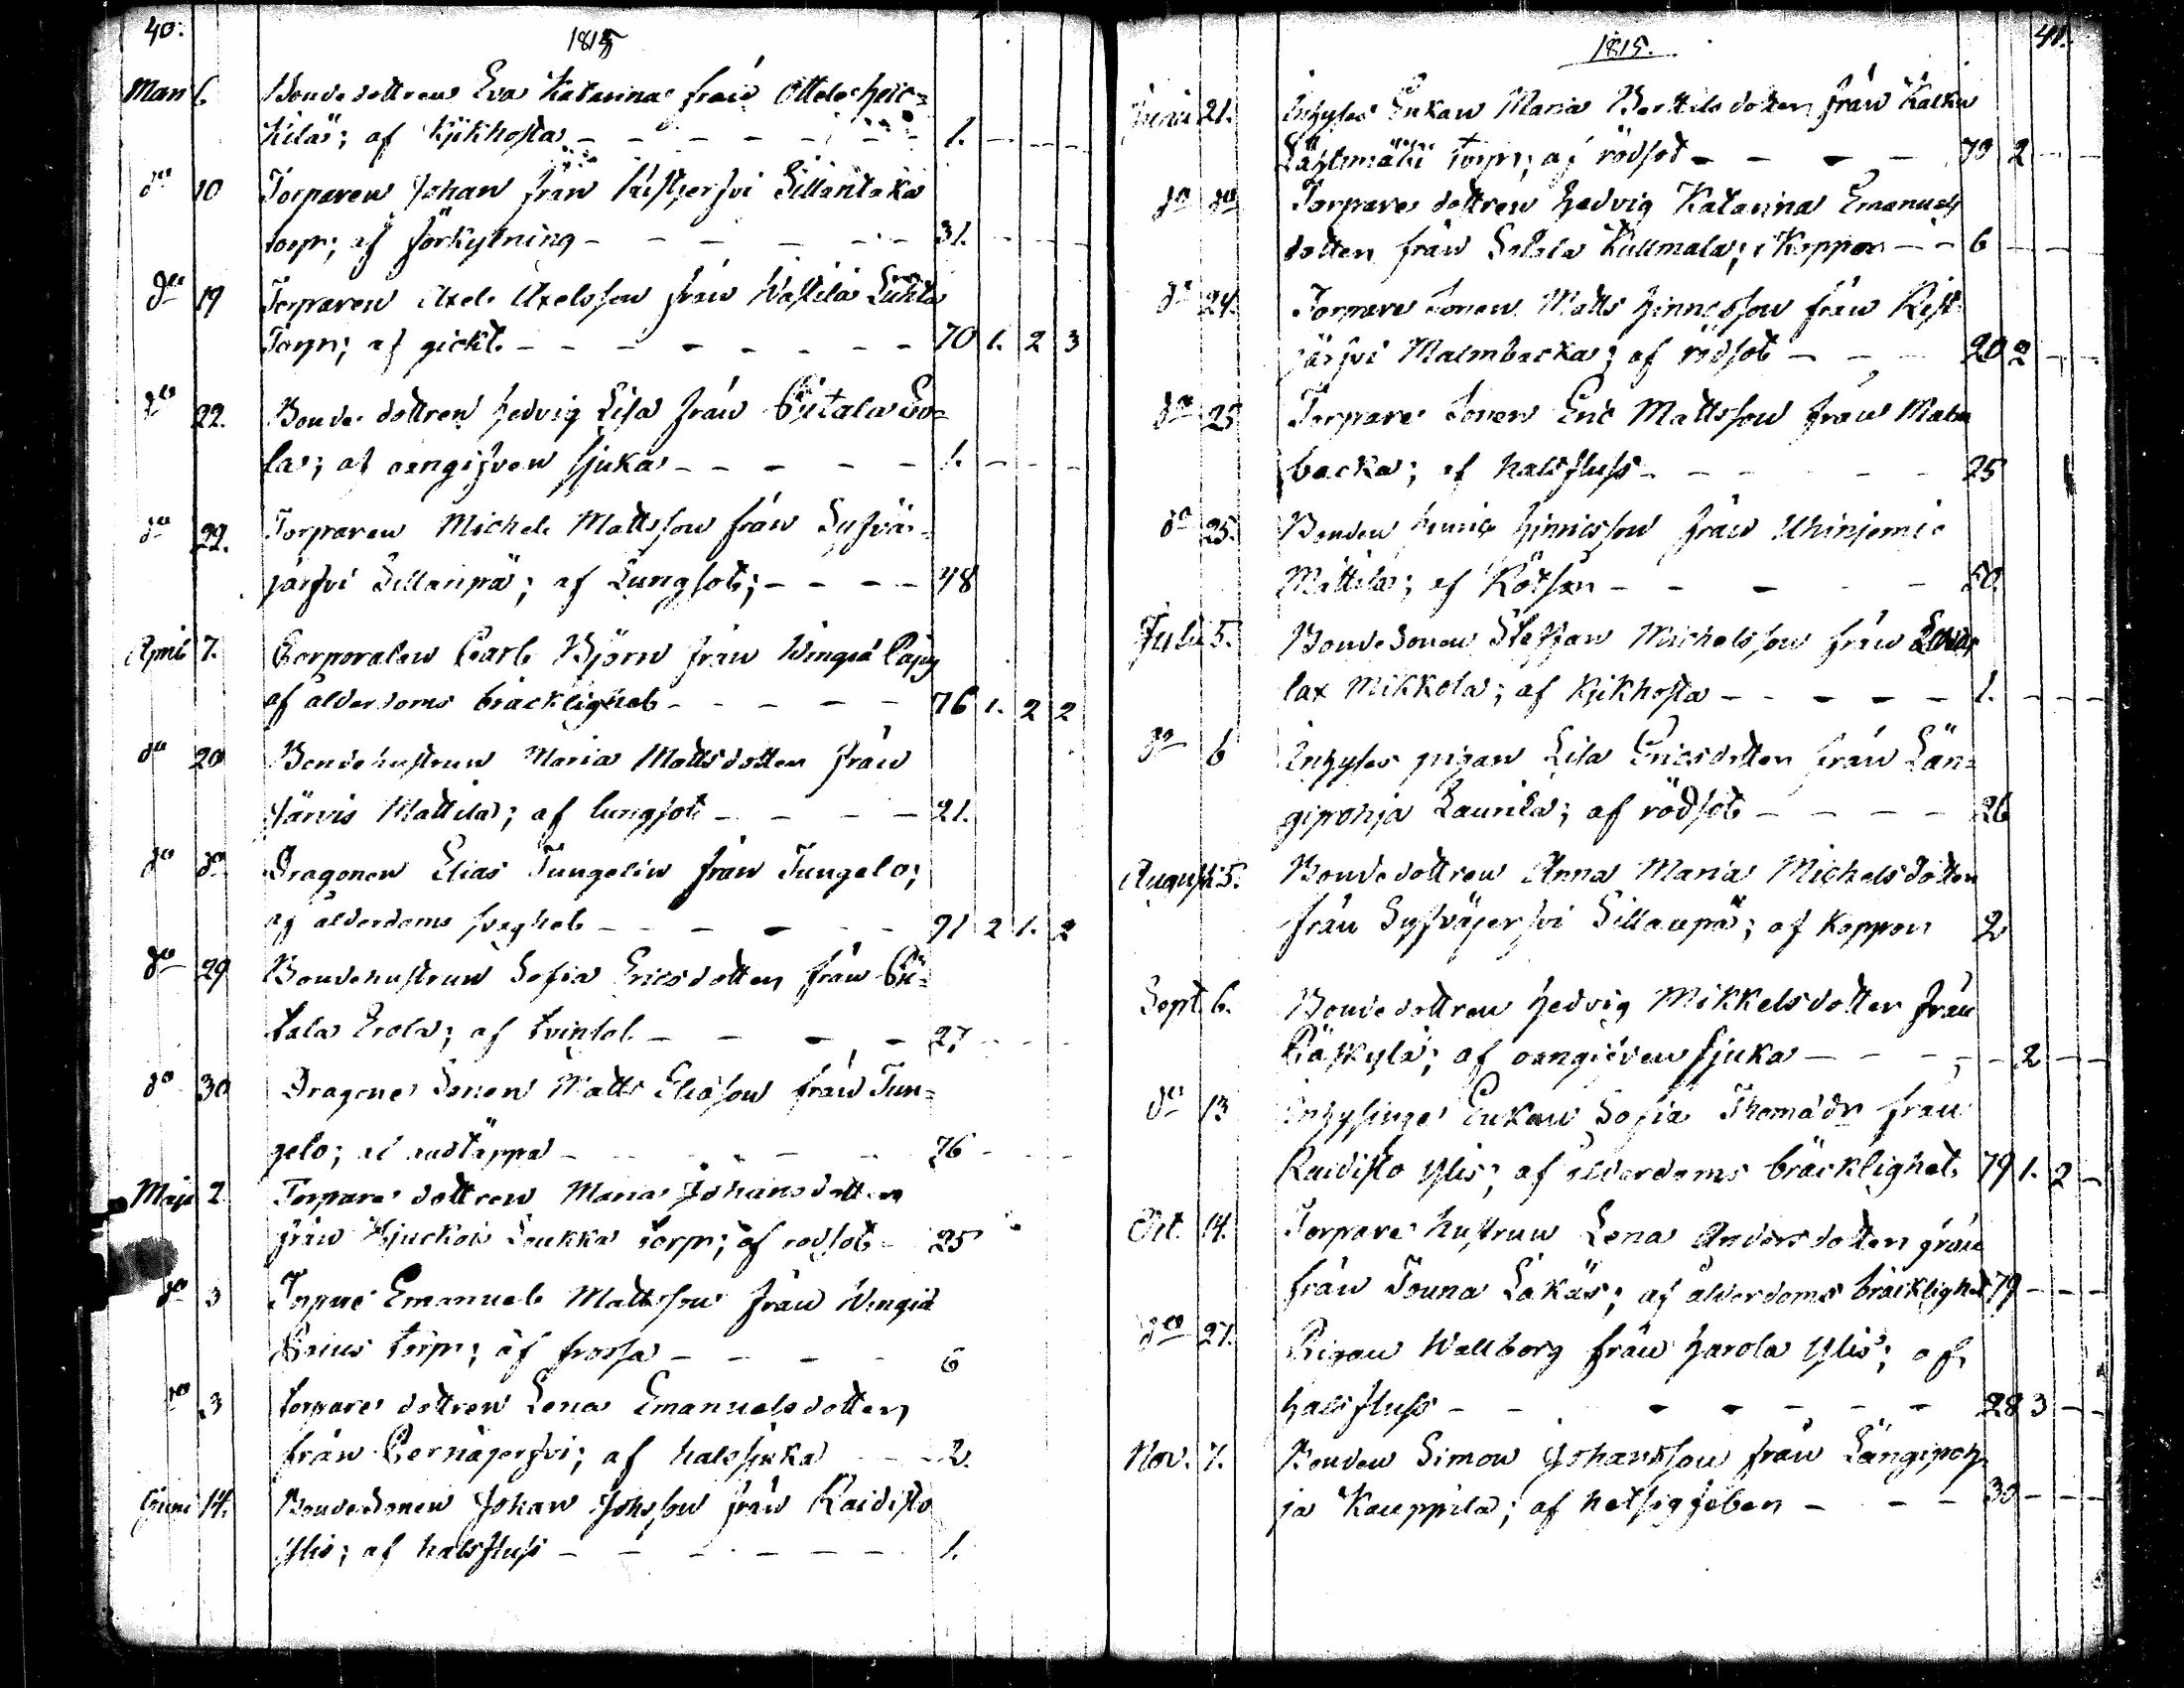 40.
1815
Mart. 6. Bondedottren Eva Katarina från Ottela Heic=
kilä; af Kjikhosta - - - - - - - 1. - - -
do 10 Torparen Johan från Ristjerfvi Sillantaka
torpr; af förkylning - - - - - - 31. - - -
do 19 Torparen Axel Axelsson från Wastila Lukta
Torpr; af gickt - - - - - - - 70 1. 2 3
do 22. Bonde dottren Hedvig Lisa från Eo=
la; af oangifven sjuka - - - - - 1. - - -
do 22. Torparen Michel Mattsson från Syfvä-
järfvi Sillanpä; af Lungsot; - - - - 48
April 7. Corporalen Carl Björn från Wingiä
af ålderdoms bräcklighet - - - - - 76 1. 2 2
do 20 Bondehustrun Maria Mattsdotter från
Järvis Mattila; af lungsot - - - - 21.
do do Dragonen Elias Tungelin från Tungelo;
af ålderdoms svaghet - - - - - - 91 2 1. 2
do 29 Bondehustrun Sofia Ericsdotter från
tala Erola; af tvinsot - - - - 27 - - -
do 30 Dragone Sonen Matts Eliasson från Tun=
gelo; af andtäppa - - - - - - 76 - - -
Maji 2 Torpare dottren Maria Johansdotter
från Loukka torpr; af rödsot - 25
do 3 Emanuel Mattsson från Wingiä
torpr; af frossa - - - - 6
do 3 torpare dottren Lena Emanuelsdotter
från Pernäjerfvi; af halssjuka - - 2.
Juni 14. Bondesonen Johan Johsson från Raidisto
Ylis; af halsfluss - - - - - - - 1.
41.
1815.
Junii 21. Inhyses Enkan Maria Bertilsdotter från Kalku
Lähtmäki torpr; af rödsot - - - - 70 2 - -
do do Torpare dottren Hedvig Katarina Emanuels
dotter från Sotola Kullmala; i Koppor - - 6 - -
do 24. Torpare Sonen Matts Hinricsson från Rist-
järfvi Malmbacka; af rödsot - - - 20 2 - -
do 25 Torpare Sonen Eric Mattsson från Malm
backa; af halsfluss - - - - - 25
do 25. Bonden Hinric Hinricsson från Uhinjemi
Mattila; af Rötsår - - - - - 50.
Julii 5. Bondesonen Steffan Michelsson från
lax Mikkola; af kjikhosta - - - - - 1. - - -
do 6 Inhyses pigan Lisa Ericsdotter från Län=
gipohja Laurila; af rödsot - - - - 26
August. 5. Bondedottren Anna Maria Michelsdotter
från Syfväjerfvi Sillanpä; af Koppor 2
Sept. 6. Bondedottren Hedvig Mikkelsdotter från
Räfkylä; af oangifven sjuka - - - - - 2 - -
do 13 Inhysinge Enkan Sofia Thomädr från
Raidisto Ylis; af ålderdoms bräcklighet 79 1. 2 -
Oct. 14. Torpare hustrun Lena Andersdotter från
från Jouna Lakäs; af ålderdoms bräcklighet 79 - - -
do 27. Pigan Wallborg från Harola Ylis; af
halsfluss - - - - - - - 28 3 - -
Nov. 7. Bonden Simon Johansson från Längipoh
ja Kauppila; af hetsig feber - - - 30 - - -